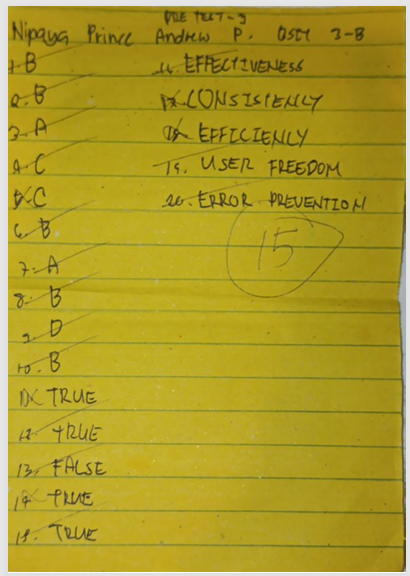 PRE TEST-3
Nipaya Prince Andrew P. BSIT 3-B
1. B
2. B
3. A
4. C
5. C
6. B
7. A
8. B
9. D
10. B
11. TRUE
12. TRUE
13. FALSE
14. TRUE
15. TRUE
16. EFFECTIVENESS
17. CONSISTENCY
18. EFFICIENCY
19. USER FREEDOM
20. ERROR PREVENTION
15